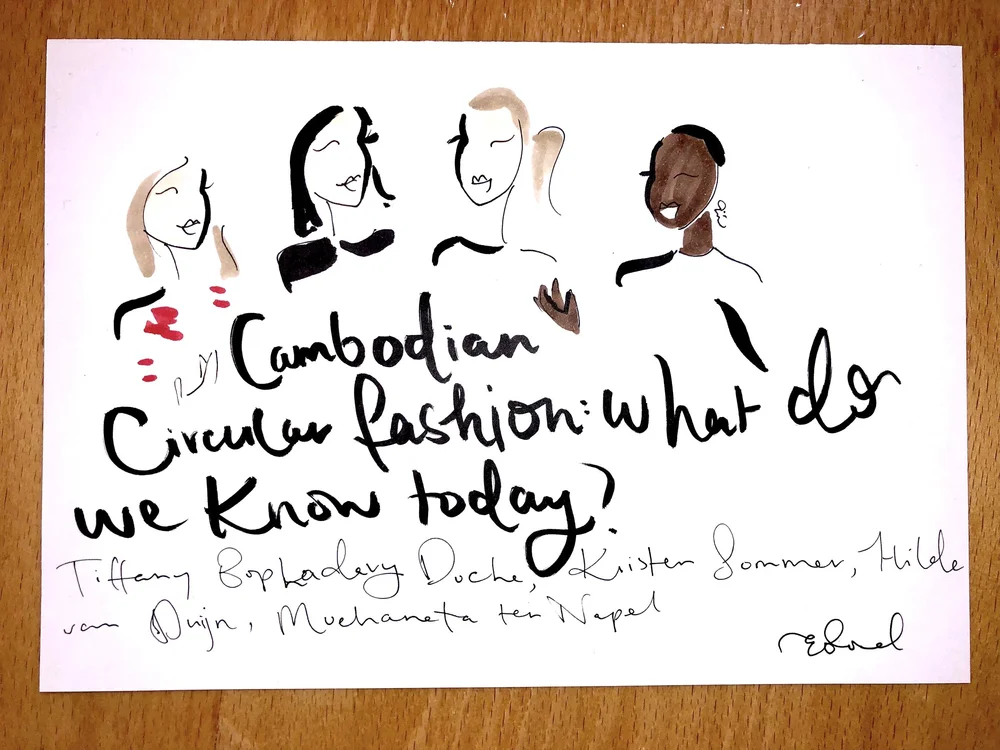 Cambodian
Circular fashion: what do
we Know today?
Tiffany Bophadevy Duche, Kristen Sommer, Hilde
van Duijn, Muchaneta ten Napel